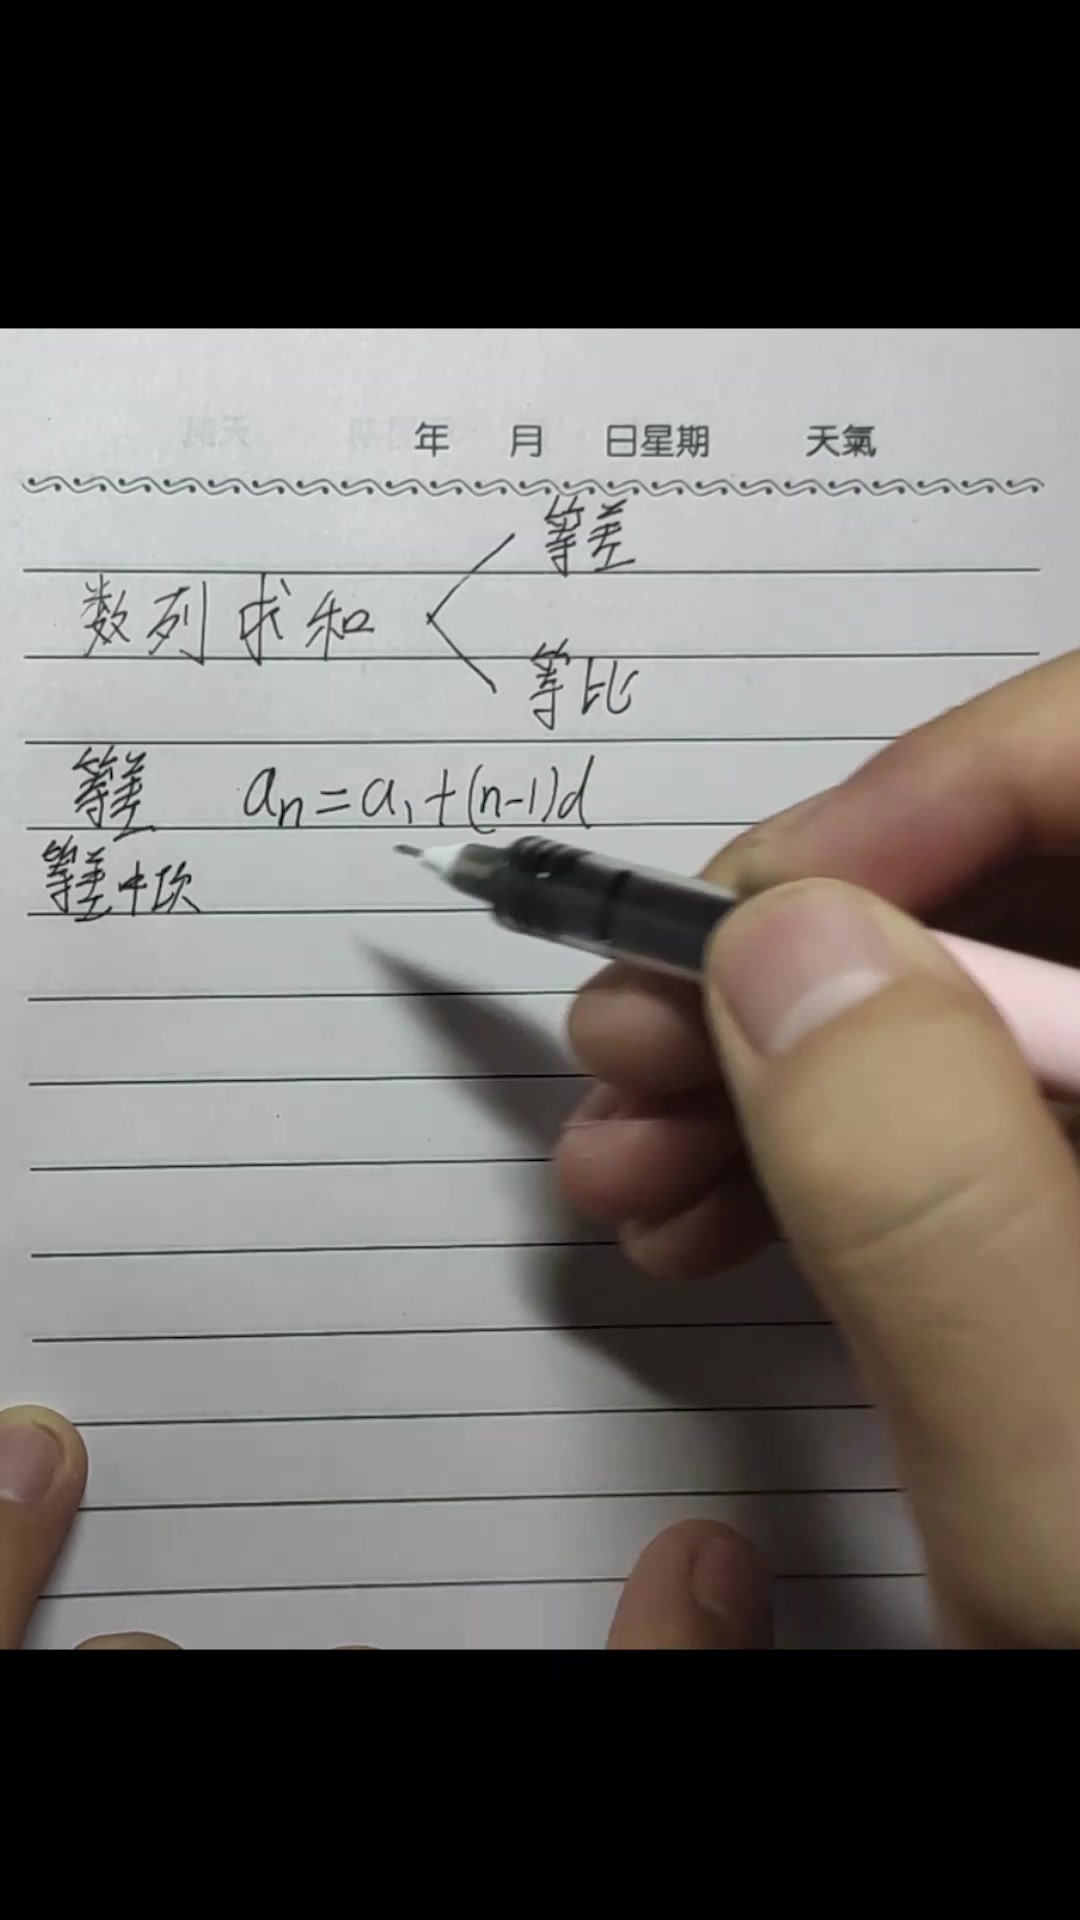 年 月 日星期 天氣
等差
数列求和
等比
等差 an=a1+(n-1)d
等差中项